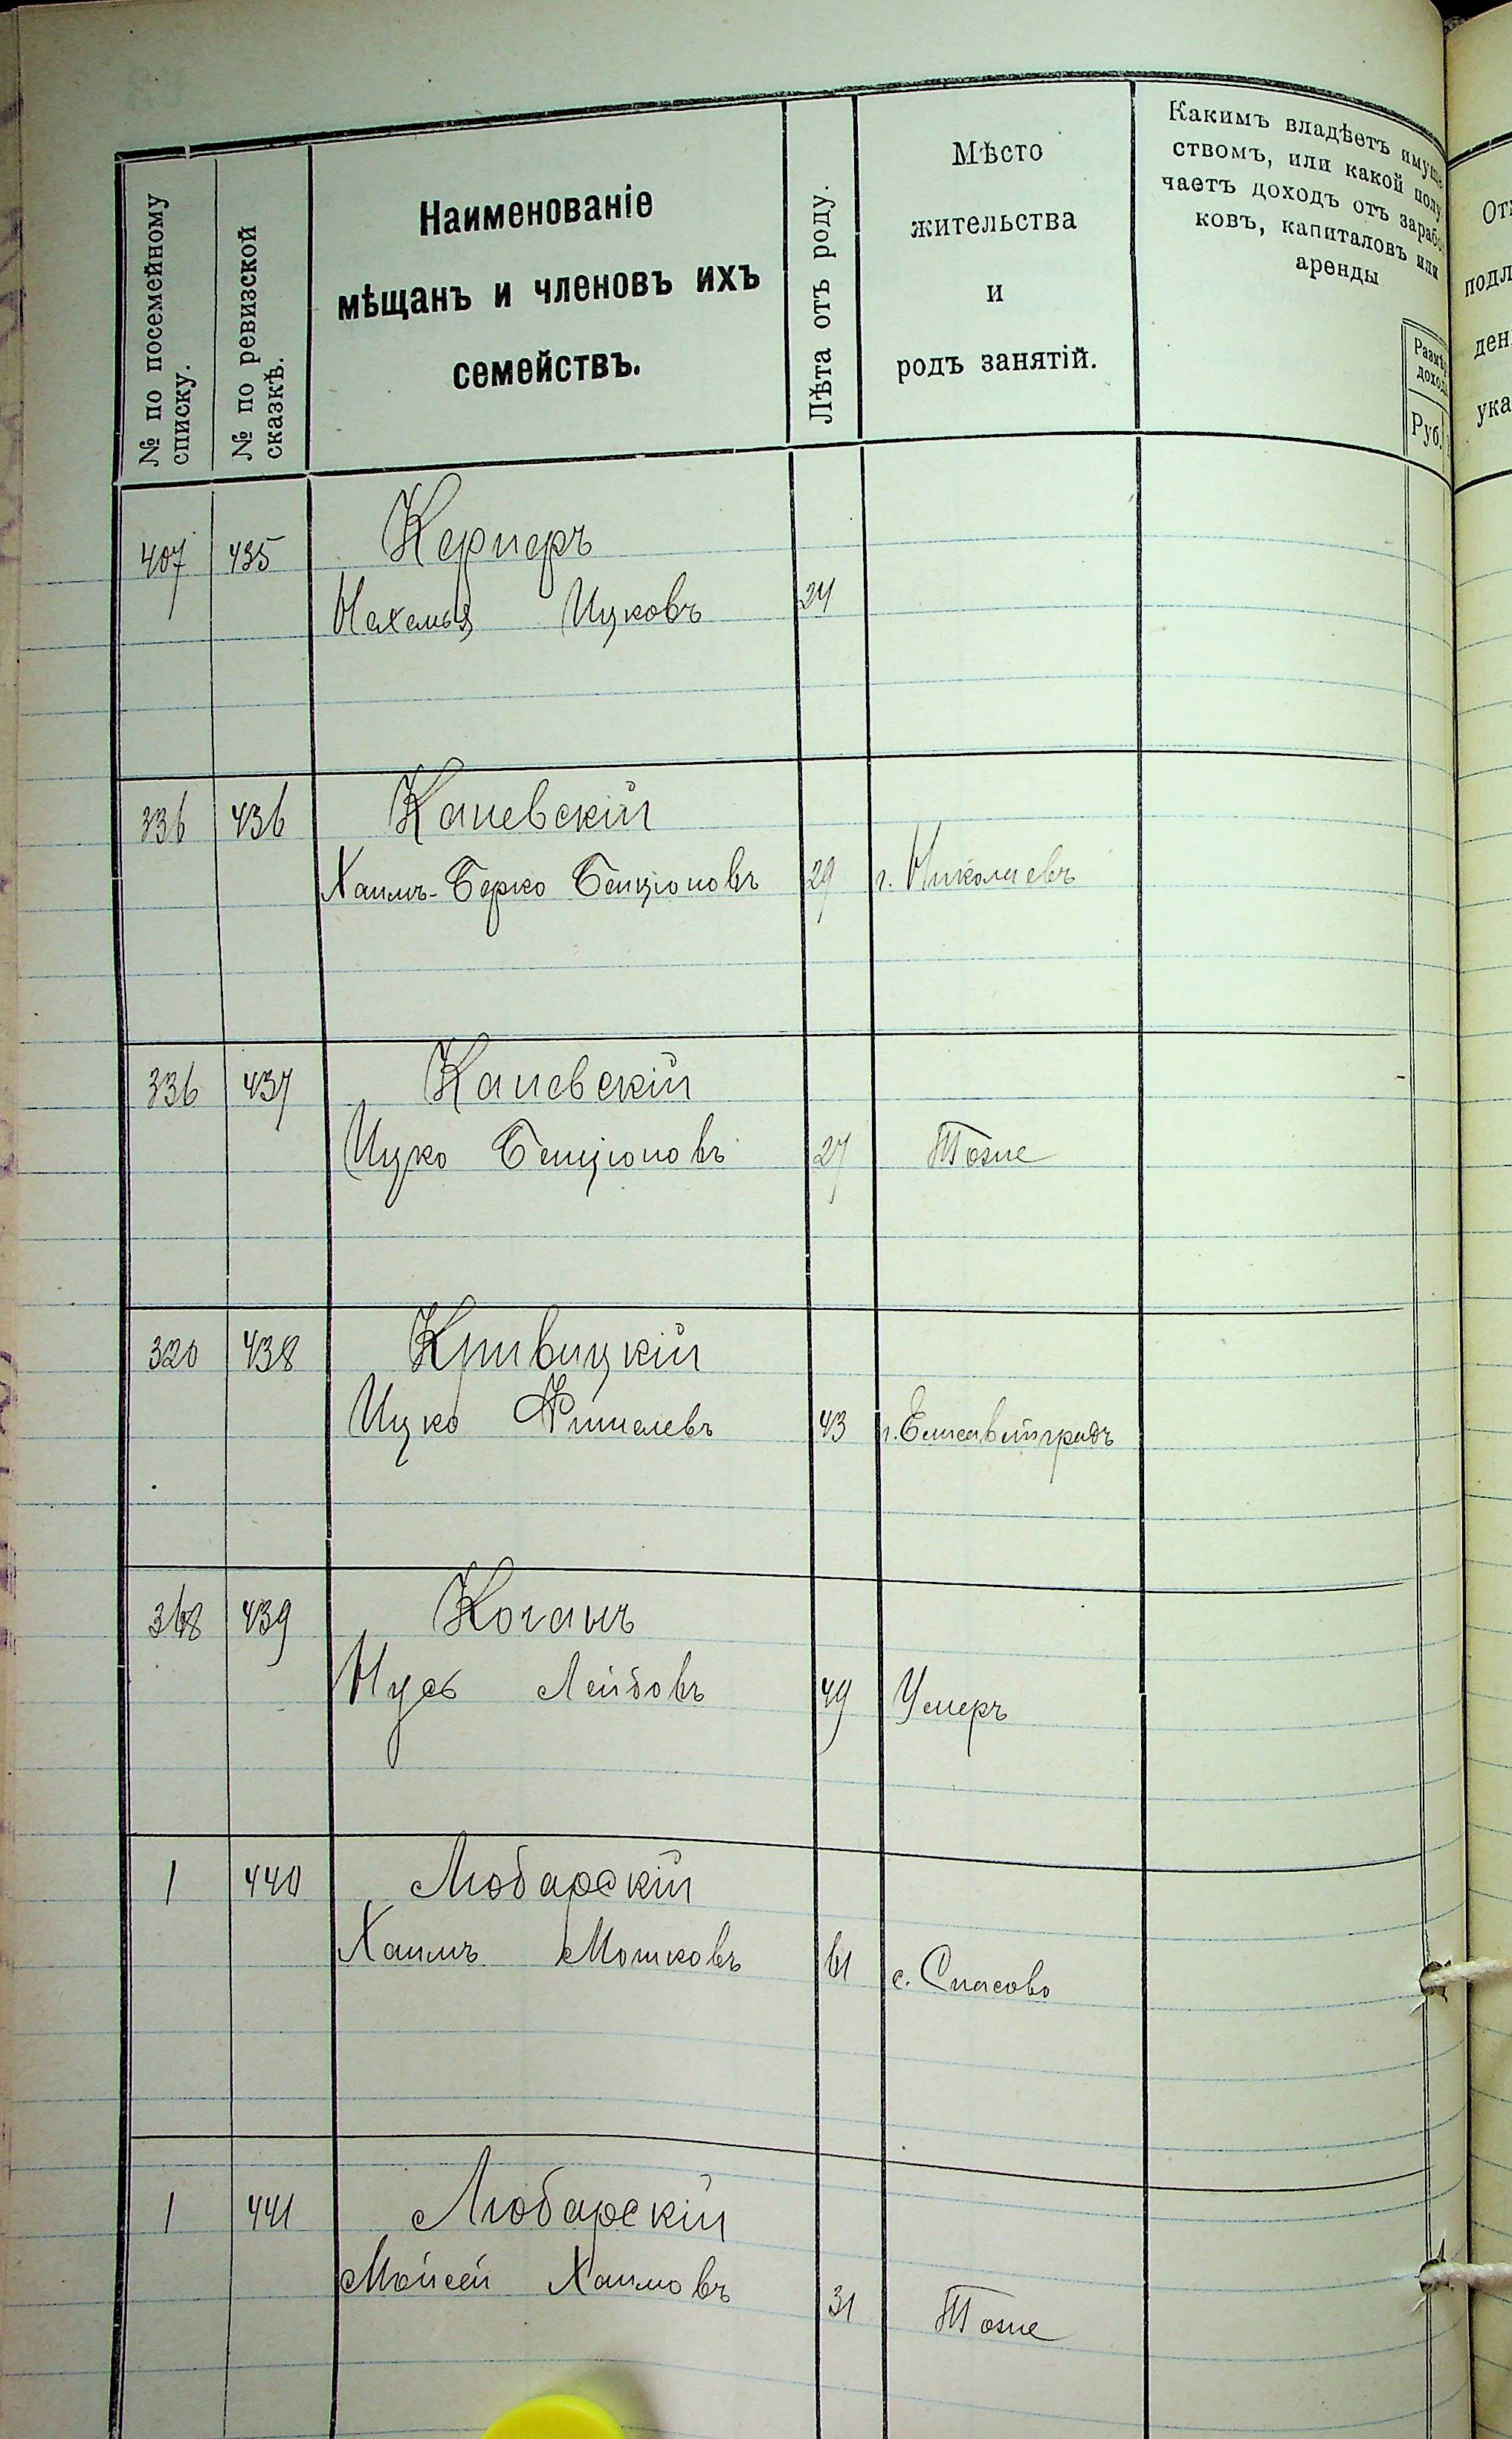 № по посемейному
списку.
№ по ревизской
сказкѣ.
Наименованіе
мѣщанъ и членовъ ихъ
семействъ.
Лѣта отъ роду.
Мѣсто
жительства
и
родъ занятій.
Какимъ владѣетъ имуще
ствомъ, или какой полу
чаетъ доходъ отъ зарабо
ковъ, капиталовъ или
аренды
Размѣр
доход
Руб.
407 435 Кернеръ
Ицковъ 24
336 436 Каневскій
Хаимъ-Берко Бенціоновъ 29 г. Николаевъ
336 437 Каневскій
Ицко Бенціоновъ 27 Тоже
320 438 Кривицкій
Ицко 43 г. Елисаветградъ
368 439 Коганъ
Нусъ Лейбовъ 49 Умеръ
1 440 Любарскій
Хаимъ Мошковъ 61 с. Спасово
1 441 Любарскій
Мойсей Хаимовъ 31 Тоже